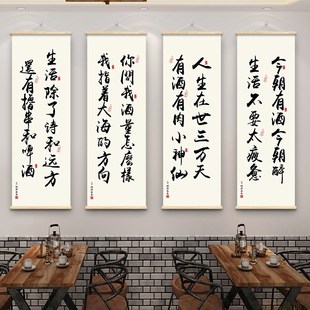 今朝有酒今朝醉
生活不要太疲惫
人生在世三万天
有酒有肉小神仙
你問我酒量怎麼樣
我指着大海的方向
生活除了诗和远方
還有撸串和啤酒